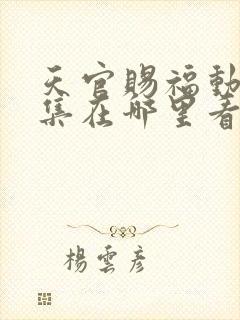 天官賜福動
集在哪里看
楊雲彦